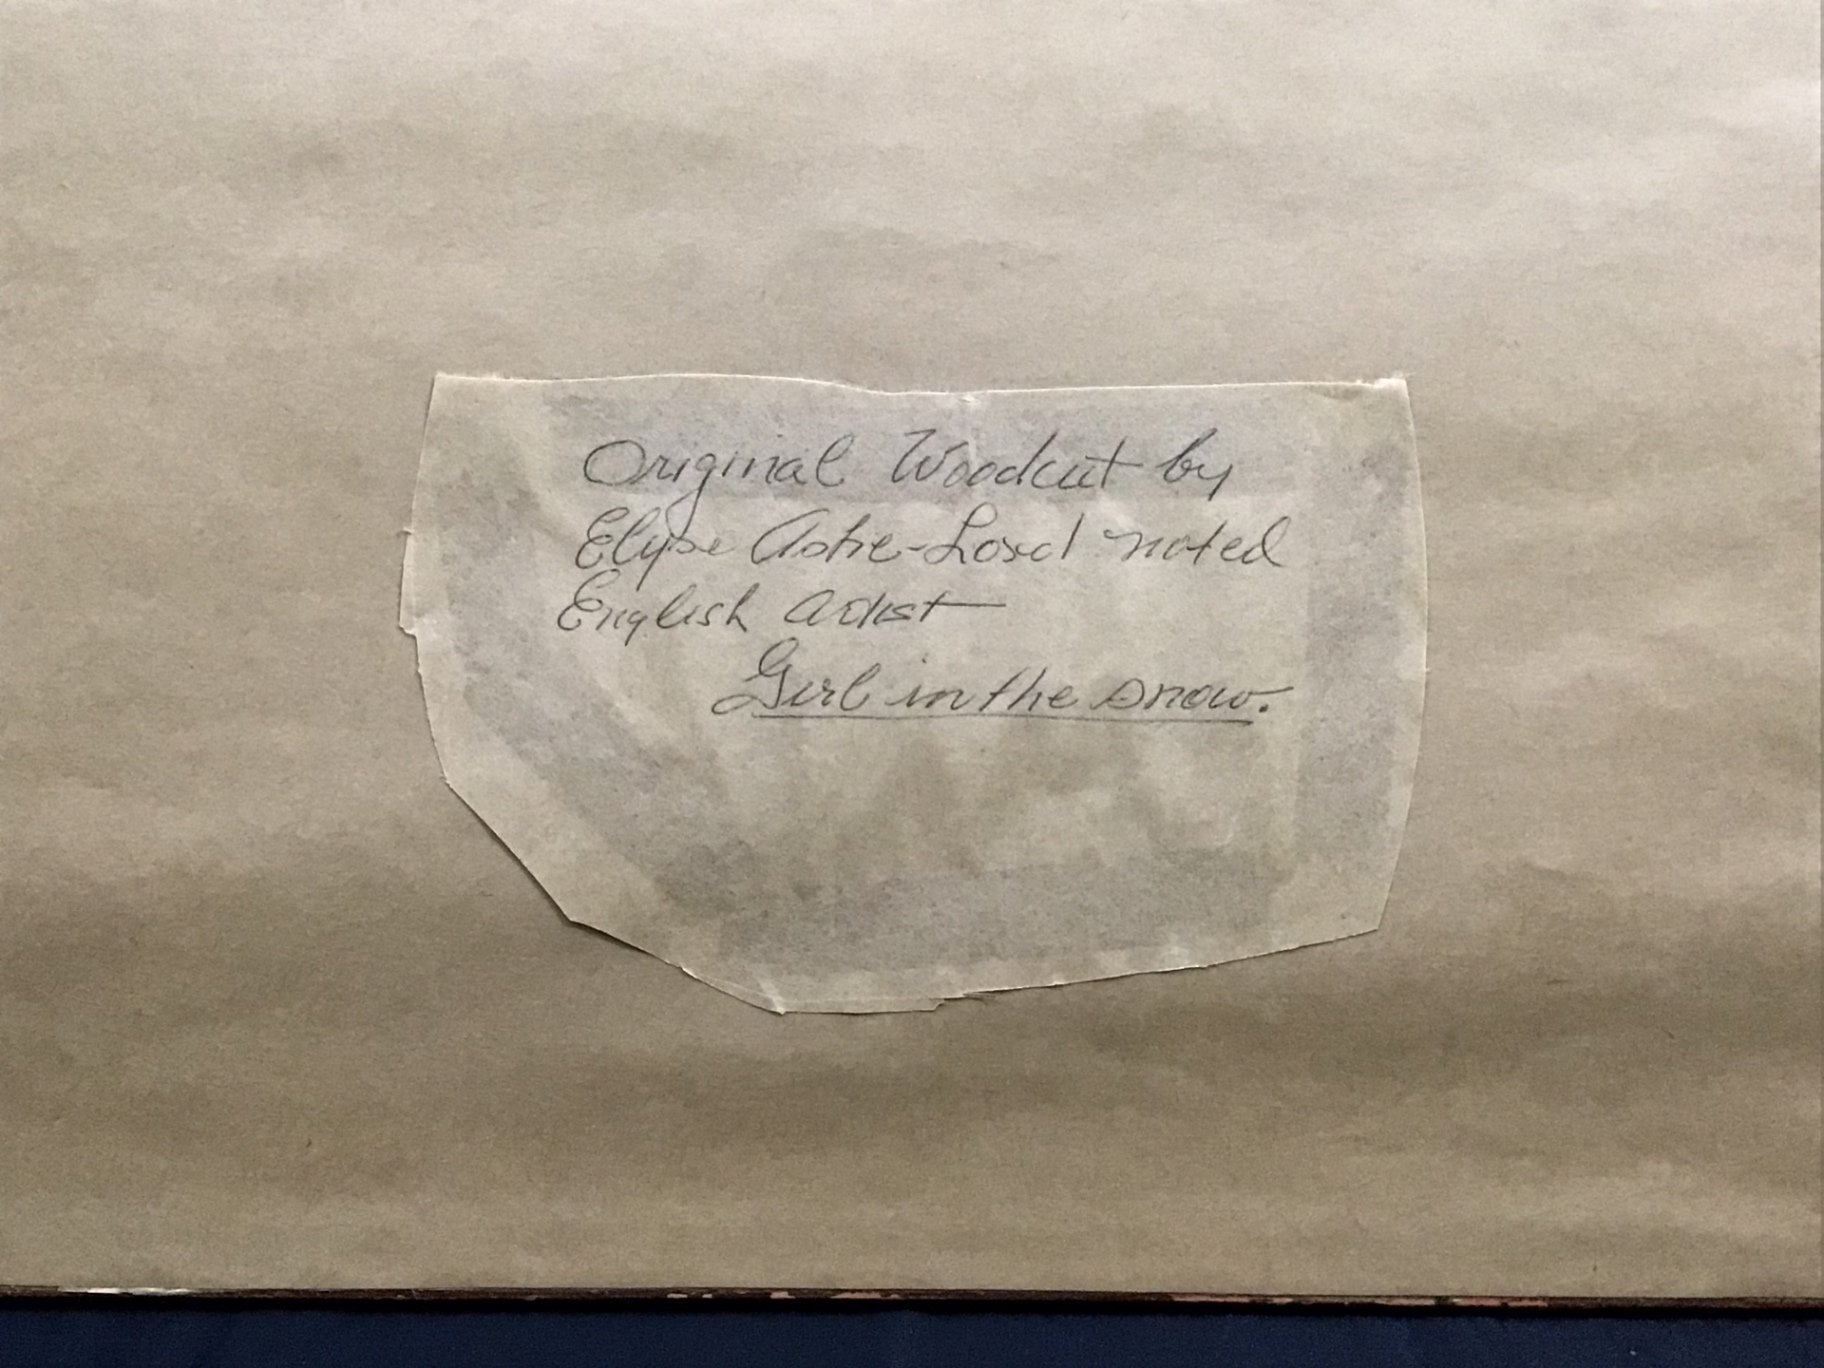 Original Woodcut by
Elyse Ashe-Lord noted
English Artist
Girl in the snow.